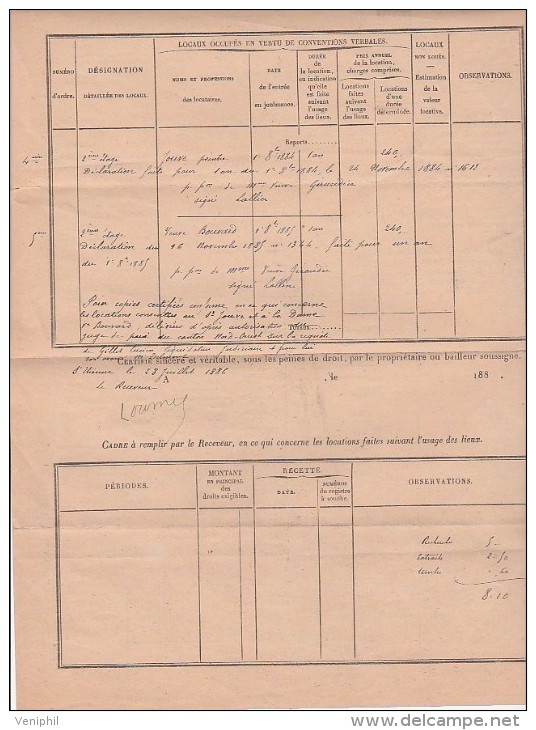 LOCAUX OCCUPÉS EN VERTU DE CONVENTIONS VERBALES.
NUMÉRO d'ordre.
DÉSIGNATION DÉTAILLÉE DES LOCAUX.
NOMS ET PROFESSIONS des locataires.
DATE de l'entrée en jouissance.
DURÉE de la location, ou indication qu'elle est faite suivant l'usage des lieux.
PRIX ANNUEL de la location, charges comprises.
Locations faites suivant l'usage des lieux.
Locations d'une durée déterminée.
LOCAUX NON LOUÉS. — Estimation de la valeur locative.
OBSERVATIONS.
Reports
2ème étage Jouve peintre 1r 8e 1884 1 an 240
Déclaration faite pour 1 an du 1r 8e 1884, le 24 Novembre 1884 n° 1613
p. pon de Mme Veuve
signé
2ème étage Veuve Bonnard 1r 8e 1885 1 an 240
Déclaration du 16 Novembre 1885 n° 1344 faite pour un an
du 1r 8e 1885
p. pon de Mme Veuve
signé
Pour copies certifiées conforme en ce qui concerne
les locations consenties au Sr Jouve et à la Dame
Ve Bonnard délivrées d'après autorisation de Mr le
juge de paix du canton Nord-Ouest sur la requête
de Gillet
CERTIFIÉ sincère et véritable, sous les peines de droit, par le propriétaire ou bailleur soussigné.
St Etienne le 23 Juillet 1886
A , le 188 .
Le Receveur
CADRE à remplir par le Receveur, en ce qui concerne les locations faites suivant l'usage des lieux.
PÉRIODES.
MONTANT EN PRINCIPAL des droits exigibles.
RECETTE.
DATE.
NUMÉROS du registre à souche.
OBSERVATIONS.
Recherche 5 —
Extraits 2.50
timbre . 60
8.10
Veniphil
www.delcampe.net